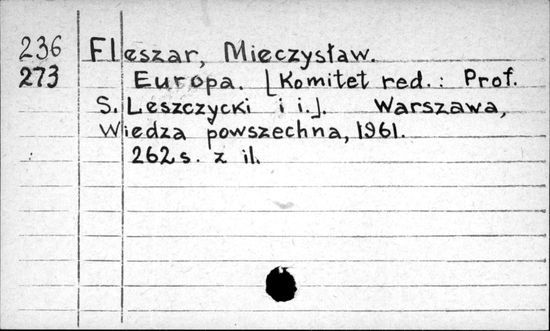 236 Fleszar, Mieczysław.
273 Europa. [Komitet red.: Prof.
S. Leszczycki i i.]. Warszawa,
Wiedza powszechna, 1961.
262 s. z il.